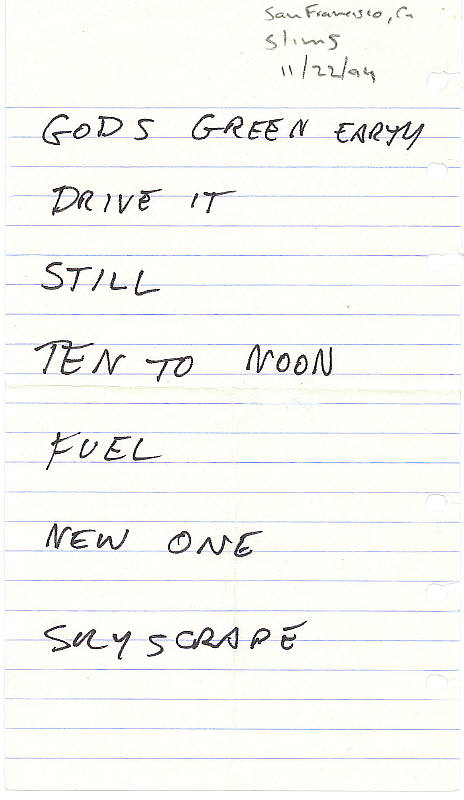 San Francisco, Ca
Slims
11/22/94
GODS GREEN EARTH
DRIVE IT
STILL
TEN TO NOON
FUEL
NEW ONE
SKYSCRAPE